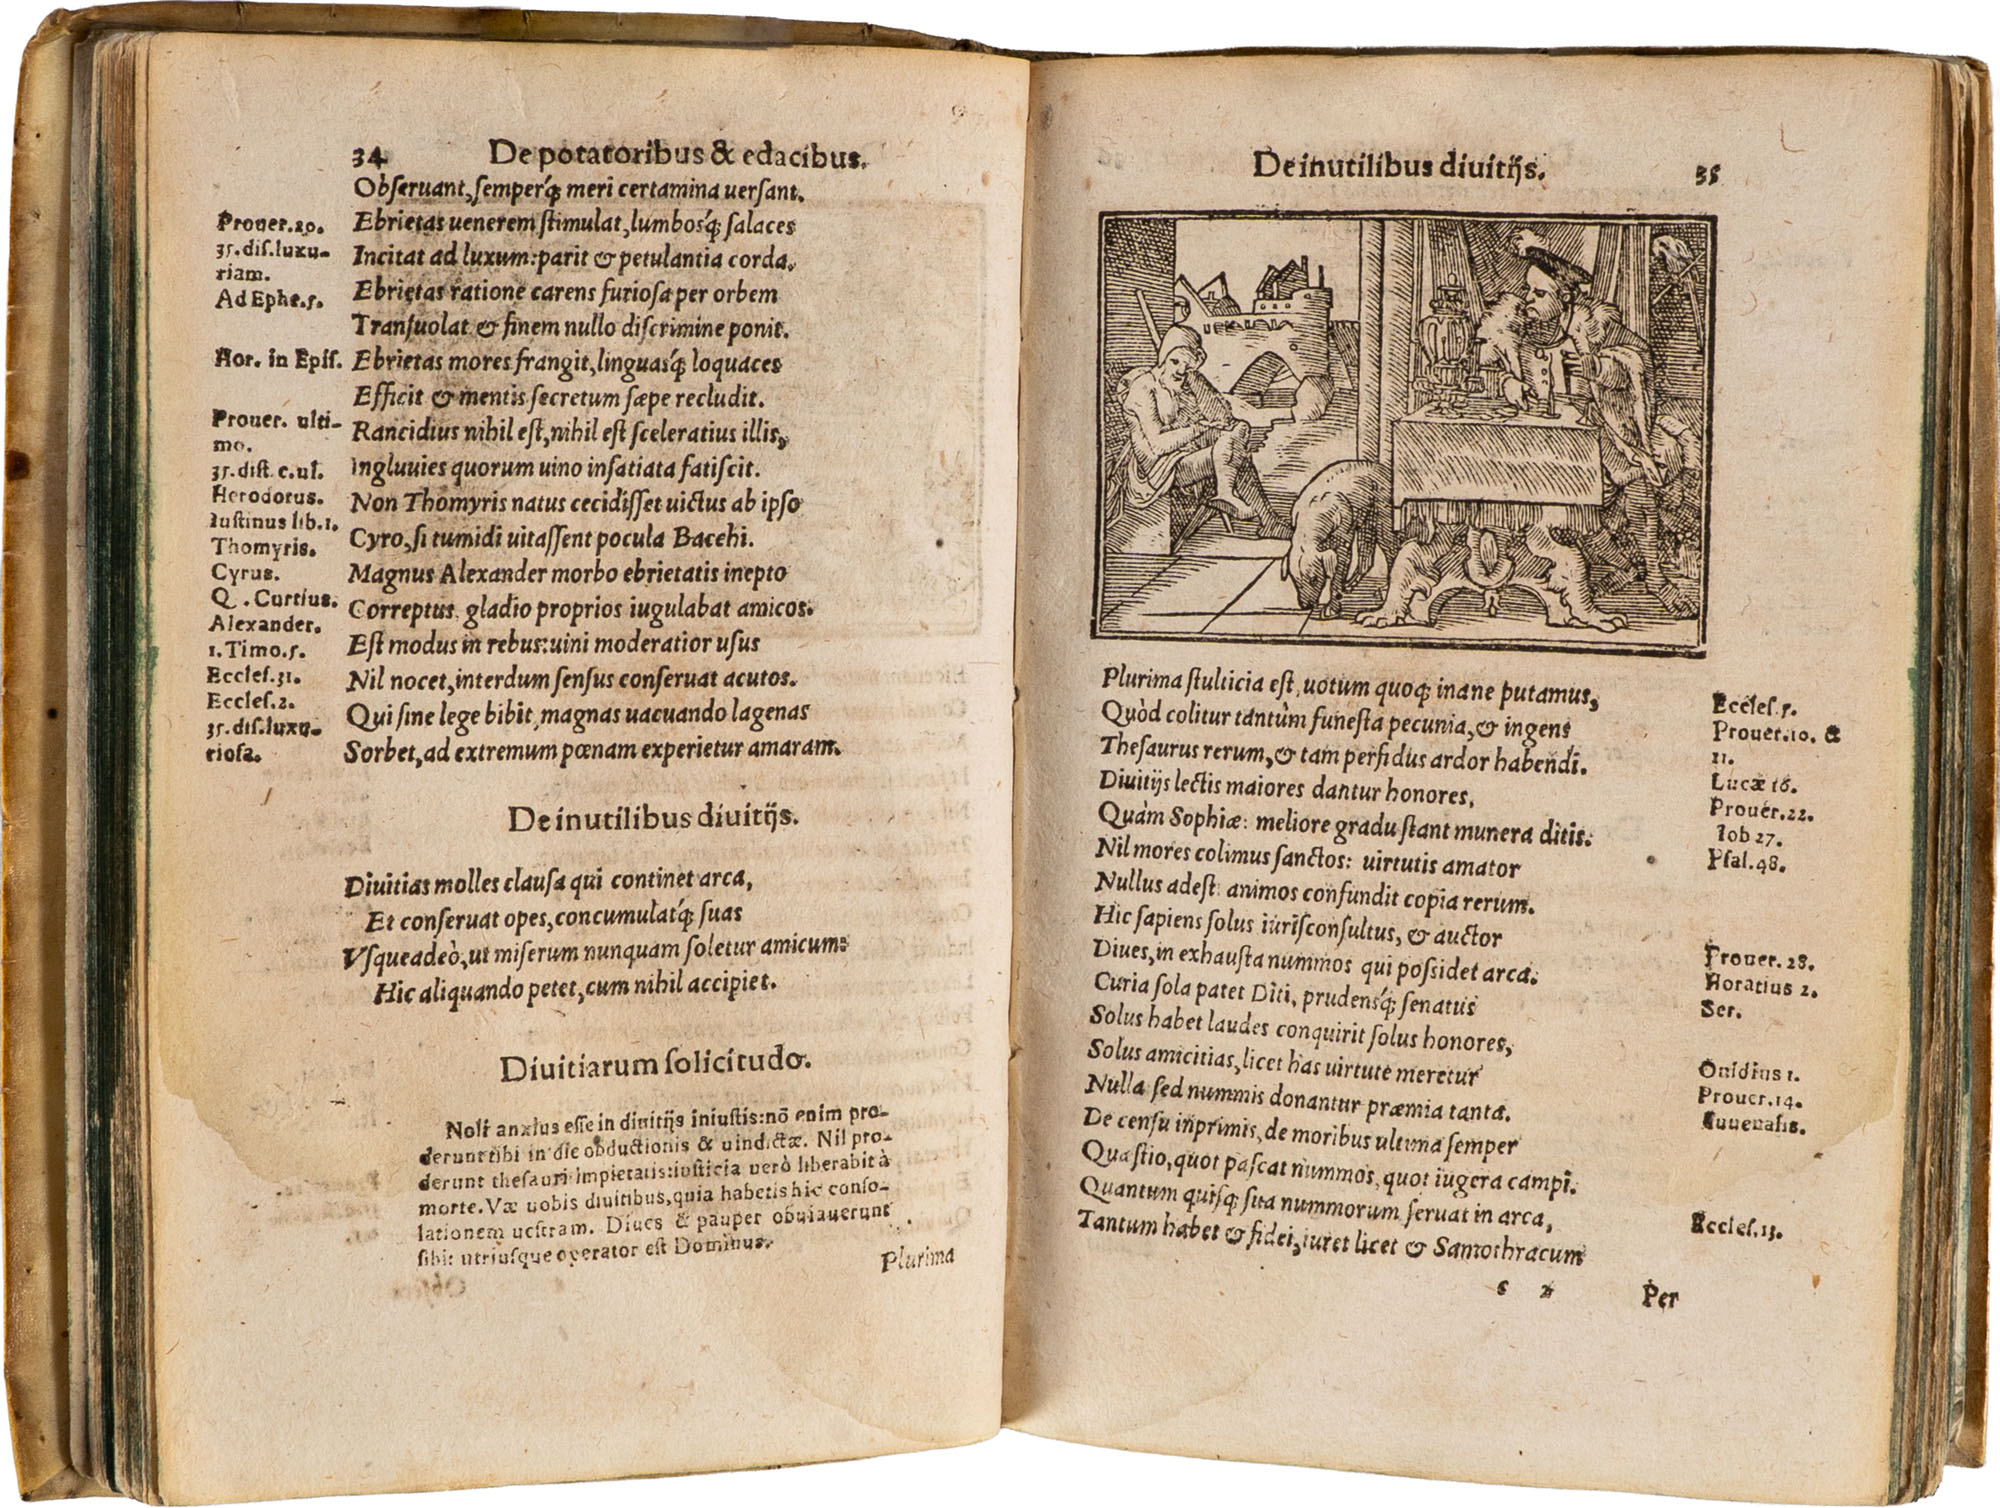 34 De potatoribus & edacibus.
Obſeruant, ſemperq́; meri certamina uerſant.
Prouer.20. Ebrietas uenerem ſtimulat, lumbosq́; ſalaces
35.diſ.luxu-
riam. Incitat ad luxum: parit & petulantia corda,
Ad Ephe.5. Ebrietas ratione carens furioſa per orbem
Tranſuolat & finem nullo diſcrimine ponit.
Hor. in Epiſ. Ebrietas mores frangit, linguasq́; loquaces
Efficit & mentis ſecretum ſæpe recludit.
Prouer. ulti-
mo. Rancidius nihil eſt, nihil eſt ſceleratius illis,
35.diſt.c.ul. Ingluuies quorum uino inſatiata fatiſcit.
Herodotus. Non Thomyris natus cecidiſſet uictus ab ipſo
Iuſtinus lib.1.
Thomyris. Cyro, ſi tumidi uitaſſent pocula Bacchi.
Cyrus. Magnus Alexander morbo ebrietatis inepto
Q. Curtius. Correptus gladio proprios iugulabat amicos.
Alexander.
1.Timo.5. Eſt modus in rebus: uini moderatior uſus
Eccleſ.31. Nil nocet, interdum ſenſus conſeruat acutos.
Eccleſ.2. Qui ſine lege bibit, magnas uacuando lagenas
35.diſ.luxu-
rioſa. Sorbet, ad extremum pœnam experietur amaram.
De inutilibus diuitijs.
Diuitias molles clauſa qui continet arca,
Et conſeruat opes, concumulatq́; ſuas
Vſqueadeò, ut miſerum nunquam ſoletur amicum:
Hic aliquando petet, cum nihil accipiet.
Diuitiarum ſolicitudo.
Noli anxius eſſe in diuitijs iniuſtis: nō enim pro-
derunt tibi in die obductionis & uindictæ. Nil pro-
derunt theſauri impietatis: iuſticia verò liberabit à
morte. Væ uobis diuitibus, quia habetis hic conſo-
lationem ueſtram. Diues & pauper obuiauerunt
ſibi: utriuſque operator eſt Dominus.
Plurima
De inutilibus diuitijs. 35
Plurima ſtulticia eſt, uotum quoq; inane putamus,
Quòd colitur tantùm funeſta pecunia, & ingens Eccleſ.5.
Theſaurus rerum, & tam perfidus ardor habendi. Prouer.10. &
11.
Diuitijs lectis maiores dantur honores, Lucæ 16.
Quàm Sophiæ: meliore gradu ſtant munera ditis. Prouer.22.
Nil mores colimus ſanctos: uirtutis amator Iob 27.
Nullus adeſt: animos confundit copia rerum. Pſal.48.
Hic ſapiens ſolus iuriſconſultus, & auctor
Diues, in exhauſta nummos qui poſsidet arca. Prouer. 28.
Curia ſola patet Diti, prudensq́; ſenatus Horatius 2.
Solus habet laudes conquirit ſolus honores, Ser.
Solus amicitias, licet has uirtute meretur
Nulla ſed nummis donantur præmia tanta. Ouidius 1.
De cenſu inprimis, de moribus ultima ſemper Prouer.14.
Quæſtio, quot paſcat nummos, quot iugera campi. Iuuenalis.
Quantum quiſq; ſua nummorum ſeruat in arca,
Tantum habet & fidei, iuret licet & Samothracum Eccleſ.13.
c 2 Per